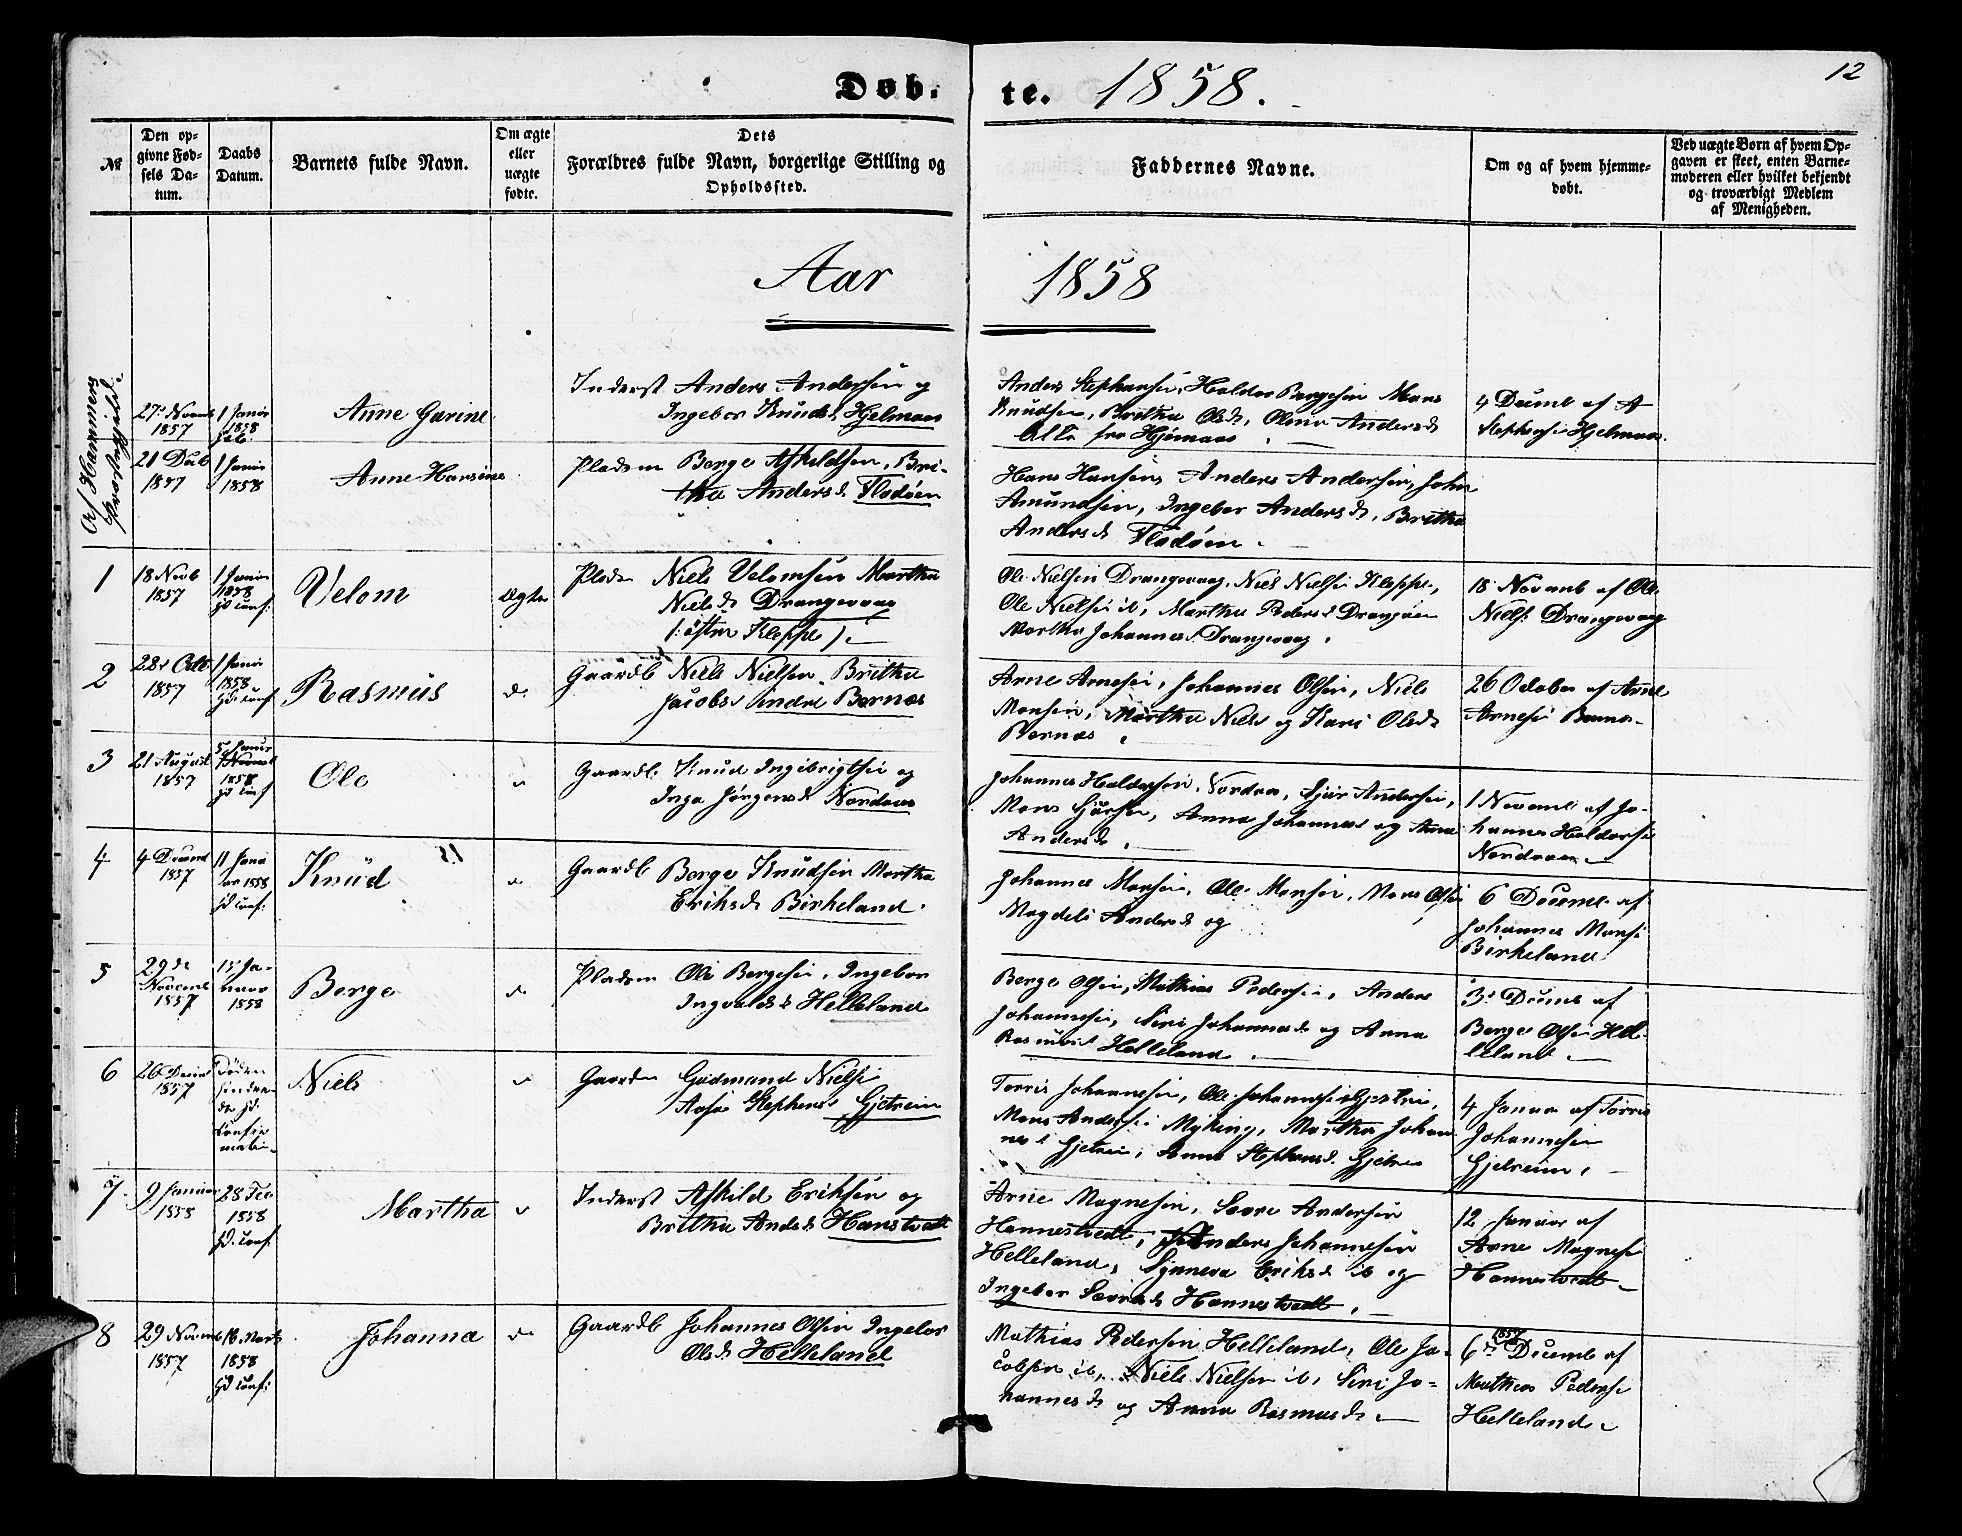 12
Døb- te. 1858.
№
Den op-
givne Fød-
sels Da-
tum.
Daabs
Datum.
Barnets fulde Navn.
Om ægte
eller
uægte
fødte.
Dets
Forældres fulde Navn, borgerlige Stilling og
Opholdssted.
Faddernes Navne.
Om og af hvem hjemme-
døbt.
Ved uægte Børn af hvem Op-
gaven er skeet, enten Barne-
moderen eller hvilket bekjendt
og troværdigt Medlem
af Menigheden.
Aar 1858
Af Hammers
Præstegjeld
1857
1858
Anne Garine
Inderst Anders Andersen og
Ingebor Knudsd Hjelmaas
Knudsen, Britha Olsd, Andersd
1857
1858
Anne Hansine
Pladsm Berge Askildsen, Bri-
tha Andersd Flodøen
Hans Hansen, Anders Andersen, John
Amundsen, Ingebor Andersd, Britha
Andersd Flodøen
1
18 Novb
1857
1858
Velom
ægte
Plads Niels Velomsen Martha
Nielsd Drangevaag
Kleppe
Ole Nielsen Drangevaag, Niels Nielsen Kleppe,
Ole Nielsen ib, Martha Pedersd
Martha Johannesd Drangevaag
18 Novemb af Ole
Niels Drangevaag
2
1857
1858
Rasmus
do
Gaardb Niels Nielsen, Britha
Jacobsd Indre Bernæs
Arne Arnesen, Johannes Olsen, Niels
Monsen, Martha Nielsd og Kari Olsd
Bernæs
26 October af Arne
Arnesen Bernæs
3
21 August
1857
1858
Ole
Gaardb. Knud Ingebrigtsen og
Inga Jørgensd Nordaas
Johannes Haldorsen, Nordaas, Sjur Andersen,
Mons Sjursen, Anna Johannesd og Anna
Andersd
1 Novemb af Jo-
hannes Haldorsen
Nordaas
4
4 Decemb
1857
11 Janu
ar 1858
Knüd
Gaardb Berge Knudsen Martha
Eriksd Birkeland
Johannes Monsen, Ole Monsen, Mons Olsen
Magdeli Andersd og
6 Decemb af
Johannes Monsen
Birkeland
5
29 de
Novemb
1857
15 Ja-
nuar
1858
Berge
Pladsm Ole Bergesen, Ingebor
Ingvaldsd Helleland
Berge Olsen, Mathias Pedersen, Anders
Johannesen, Siri Johannesd og Anna
Rasmusd Helleland
3 Decemb af
Berge Olsen Hel-
leland
6
1857
Døden
Niels
Gaardm Gudmund Nielsen
Stephensd Gjetreim
Torris Johannesen, Ole Johannesen
Mons Andersen Myking, Martha Johan
Anna Stephensd
4 Januar af Torris
Johannesen
Gjetreim
7
9 Januar
1858
28 Feb
1858
Martha
Inderst Askild Eriksen og
Britha Andsd Hanstvedt
Arne Magnesen, Sære Andersen
Hannestvedt, Anders Johannesen
Helleland, Synneva Eriksd ib og
Ingebor Hannestvedt
12 Januar af
Arne Magnesen
Hannestvedt
8
29 Novemb
1857
16 Marts
1858
Johanna
do
Gaardb Johannes Olsen Ingebor
Olsd Helleland
Mathias Pedersen Helleland, Ole Ja-
cobsen ib, Niels Nielsen ib, Siri Jo-
hannesd og Anna Rasmusd
1857
6 Decemb af
Mathias Pedersen
Helleland